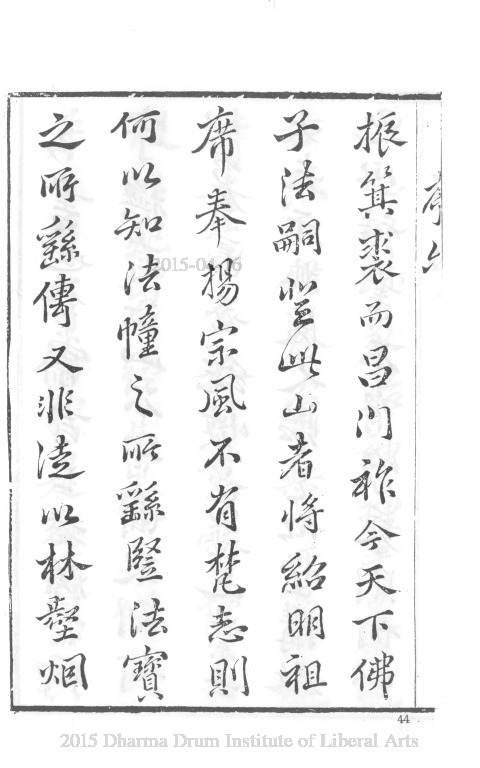 振箕裘而昌门祚今天下佛
子法嗣登此山者将紹明祖
席奉揚宗風不有梵志則
何以知法幢之所繇豎法寳
之所繇傳又非徒以林壑烟
44
2015-04-16
2015 Dharma Drum Institute of Liberal Arts